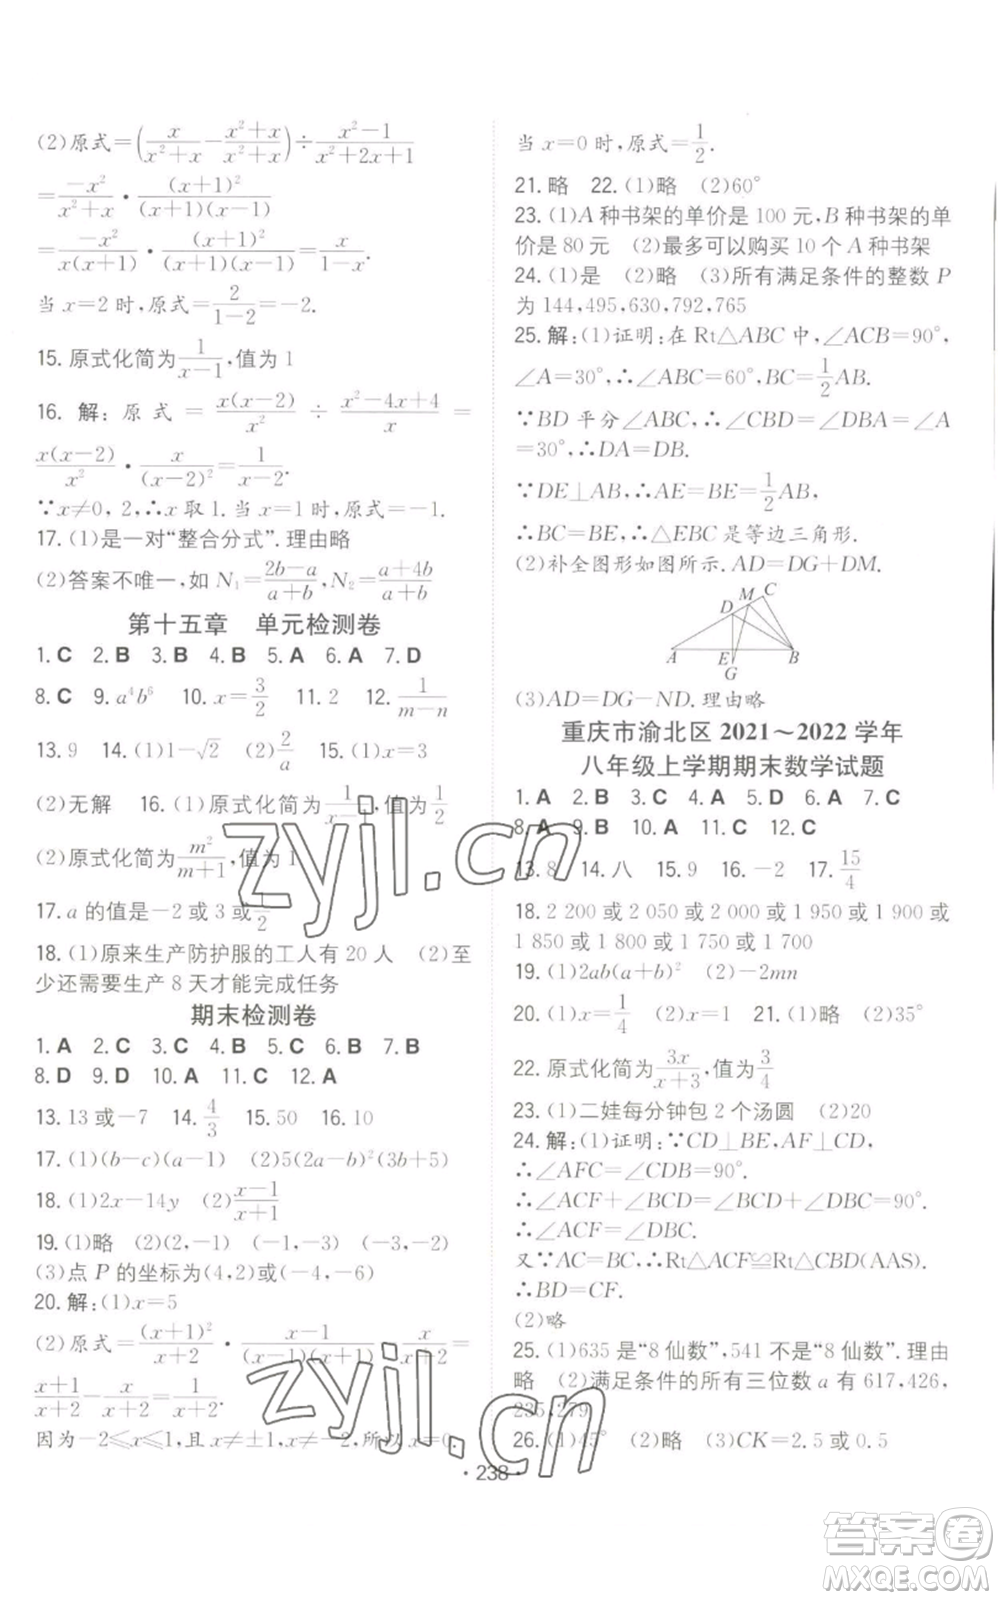 (2)原式=(x/(x²+x)-(x²+x)/(x²+x))÷(x²-1)/(x²+2x+1)
=(-x²)/(x²+x)·(x+1)²/((x+1)(x-1))
=(-x²)/(x(x+1))·(x+1)²/((x+1)(x-1))=x/(1-x).
当 x=2 时,原式=2/(1-2)=-2.
15. 原式化简为1/(x-1),值为 1
16. 解:原式=x(x-2)/x²÷(x²-4x+4)/x=
x(x-2)/x²·x/(x-2)²=1/(x-2).
∵x≠0, 2,∴x 取 1. 当 x=1 时,原式=-1.
17. (1)是一对“整合分式”. 理由略
(2)答案不唯一,如 N₁=(2b-a)/(a+b), N₂=(a+4b)/(a+b)
第十五章 单元检测卷
1. C 2. B 3. B 4. B 5. A 6. A 7. D
8. C 9. a⁴b⁶ 10. x=3/2 11. 2 12. 1/(m-n)
13. 9 14. (1)1-√2 (2)2/a 15.
(2)无解 16. (1)原式化简为1/(x-1),值为
(2)原式化简为m²/(m+1),值为 1
17. a 的值是-2 或 3 或 /2
18. (1)原来生产防护服的工人有 20 人 (2)至
少还需要生产 8 天才能完成任务
期末检测卷
1. A 2. C 3. C 4. B 5. C 6. B 7. B
8. D 9. D 10. A 11. C 12. A
13. 13 或-7 14. 4/3 15. 50 16. 10
17. (1)(b-c)(a-1) (2)5(2a-b)²(3b+5)
18. (1)2x-14y (2)(x-1)/(x+1)
19. (1)略 (2)(2,-1) (-1,-3) (-4,-2)
(3)点 P 的坐标为(4,2)或(-4,-6)
20. 解:(1)x=5
(2)原式=(x+1)²/(x+2)·(x-1)/((x-1)(x+1))-x/(x+2)=
(x+1)/(x+2)-x/(x+2)=1/(x+2).
因为-2≤x≤1,且 x≠±1,x≠-2,所以 x=0.
当 x=0 时,原式=1/2.
21. 略 22. (1)略 (2)60°
23. (1)A 种书架的单价是 100 元,B 种书架的单
价是 80 元 (2)最多可以购买 10 个 A 种书架
24. (1)是 (2)略 (3)所有满足条件的整数 P
为 144,495,630,792,765
25. 解:(1)证明:在 Rt△ABC 中,∠ACB=90°,
∠A=30°,∴∠ABC=60°,BC=1/2AB.
∵BD 平分∠ABC,∴∠CBD=∠DBA=∠A
=30°. ∴DA=DB.
∵DE⊥AB,∴AE=BE=1/2AB.
∴BC=BE,∴△EBC 是等边三角形.
(2)补全图形如图所示. AD=DG+DM.
C
M
D
A E B
G
(3)AD=DG-ND. 理由略
重庆市渝北区 2021~2022 学年
八年级上学期期末数学试题
1. A 2. B 3. C 4. A 5. D 6. A 7. C
8. A 9. B 10. A 11. C 12. C
13. 8 14. 八 15. 9 16. -2 17. 15/4
18. 2 200 或 2 050 或 2 000 或 1 950 或 1 900 或
1 850 或 1 800 或 1 750 或 1 700
19. (1)2ab(a+b)² (2)-2mn
20. (1)x=1/4 (2)x=1 21. (1)略 (2)35°
22. 原式化简为3x/(x+3),值为3/4
23. (1)二娃每分钟包 2 个汤圆 (2)20
24. 解:(1)证明:∵CD⊥BE,AF⊥CD,
∴∠AFC=∠CDB=90°.
∴∠ACF+∠BCD=∠BCD+∠DBC=90°.
∴∠ACF=∠DBC.
又∵AC=BC,∴Rt△ACF≌Rt△CBD(AAS).
∴BD=CF.
(2)略
25. (1)635 是“8 仙数”,541 不是“8 仙数”. 理由
略 (2)满足条件的所有三位数 a 有 617,426,
235,279
26. (1)45° (2)略 (3)CK=2.5 或 0.5
· 238 ·
zyjl.cn
zyjl.cn
答案卷
MXQE.COM